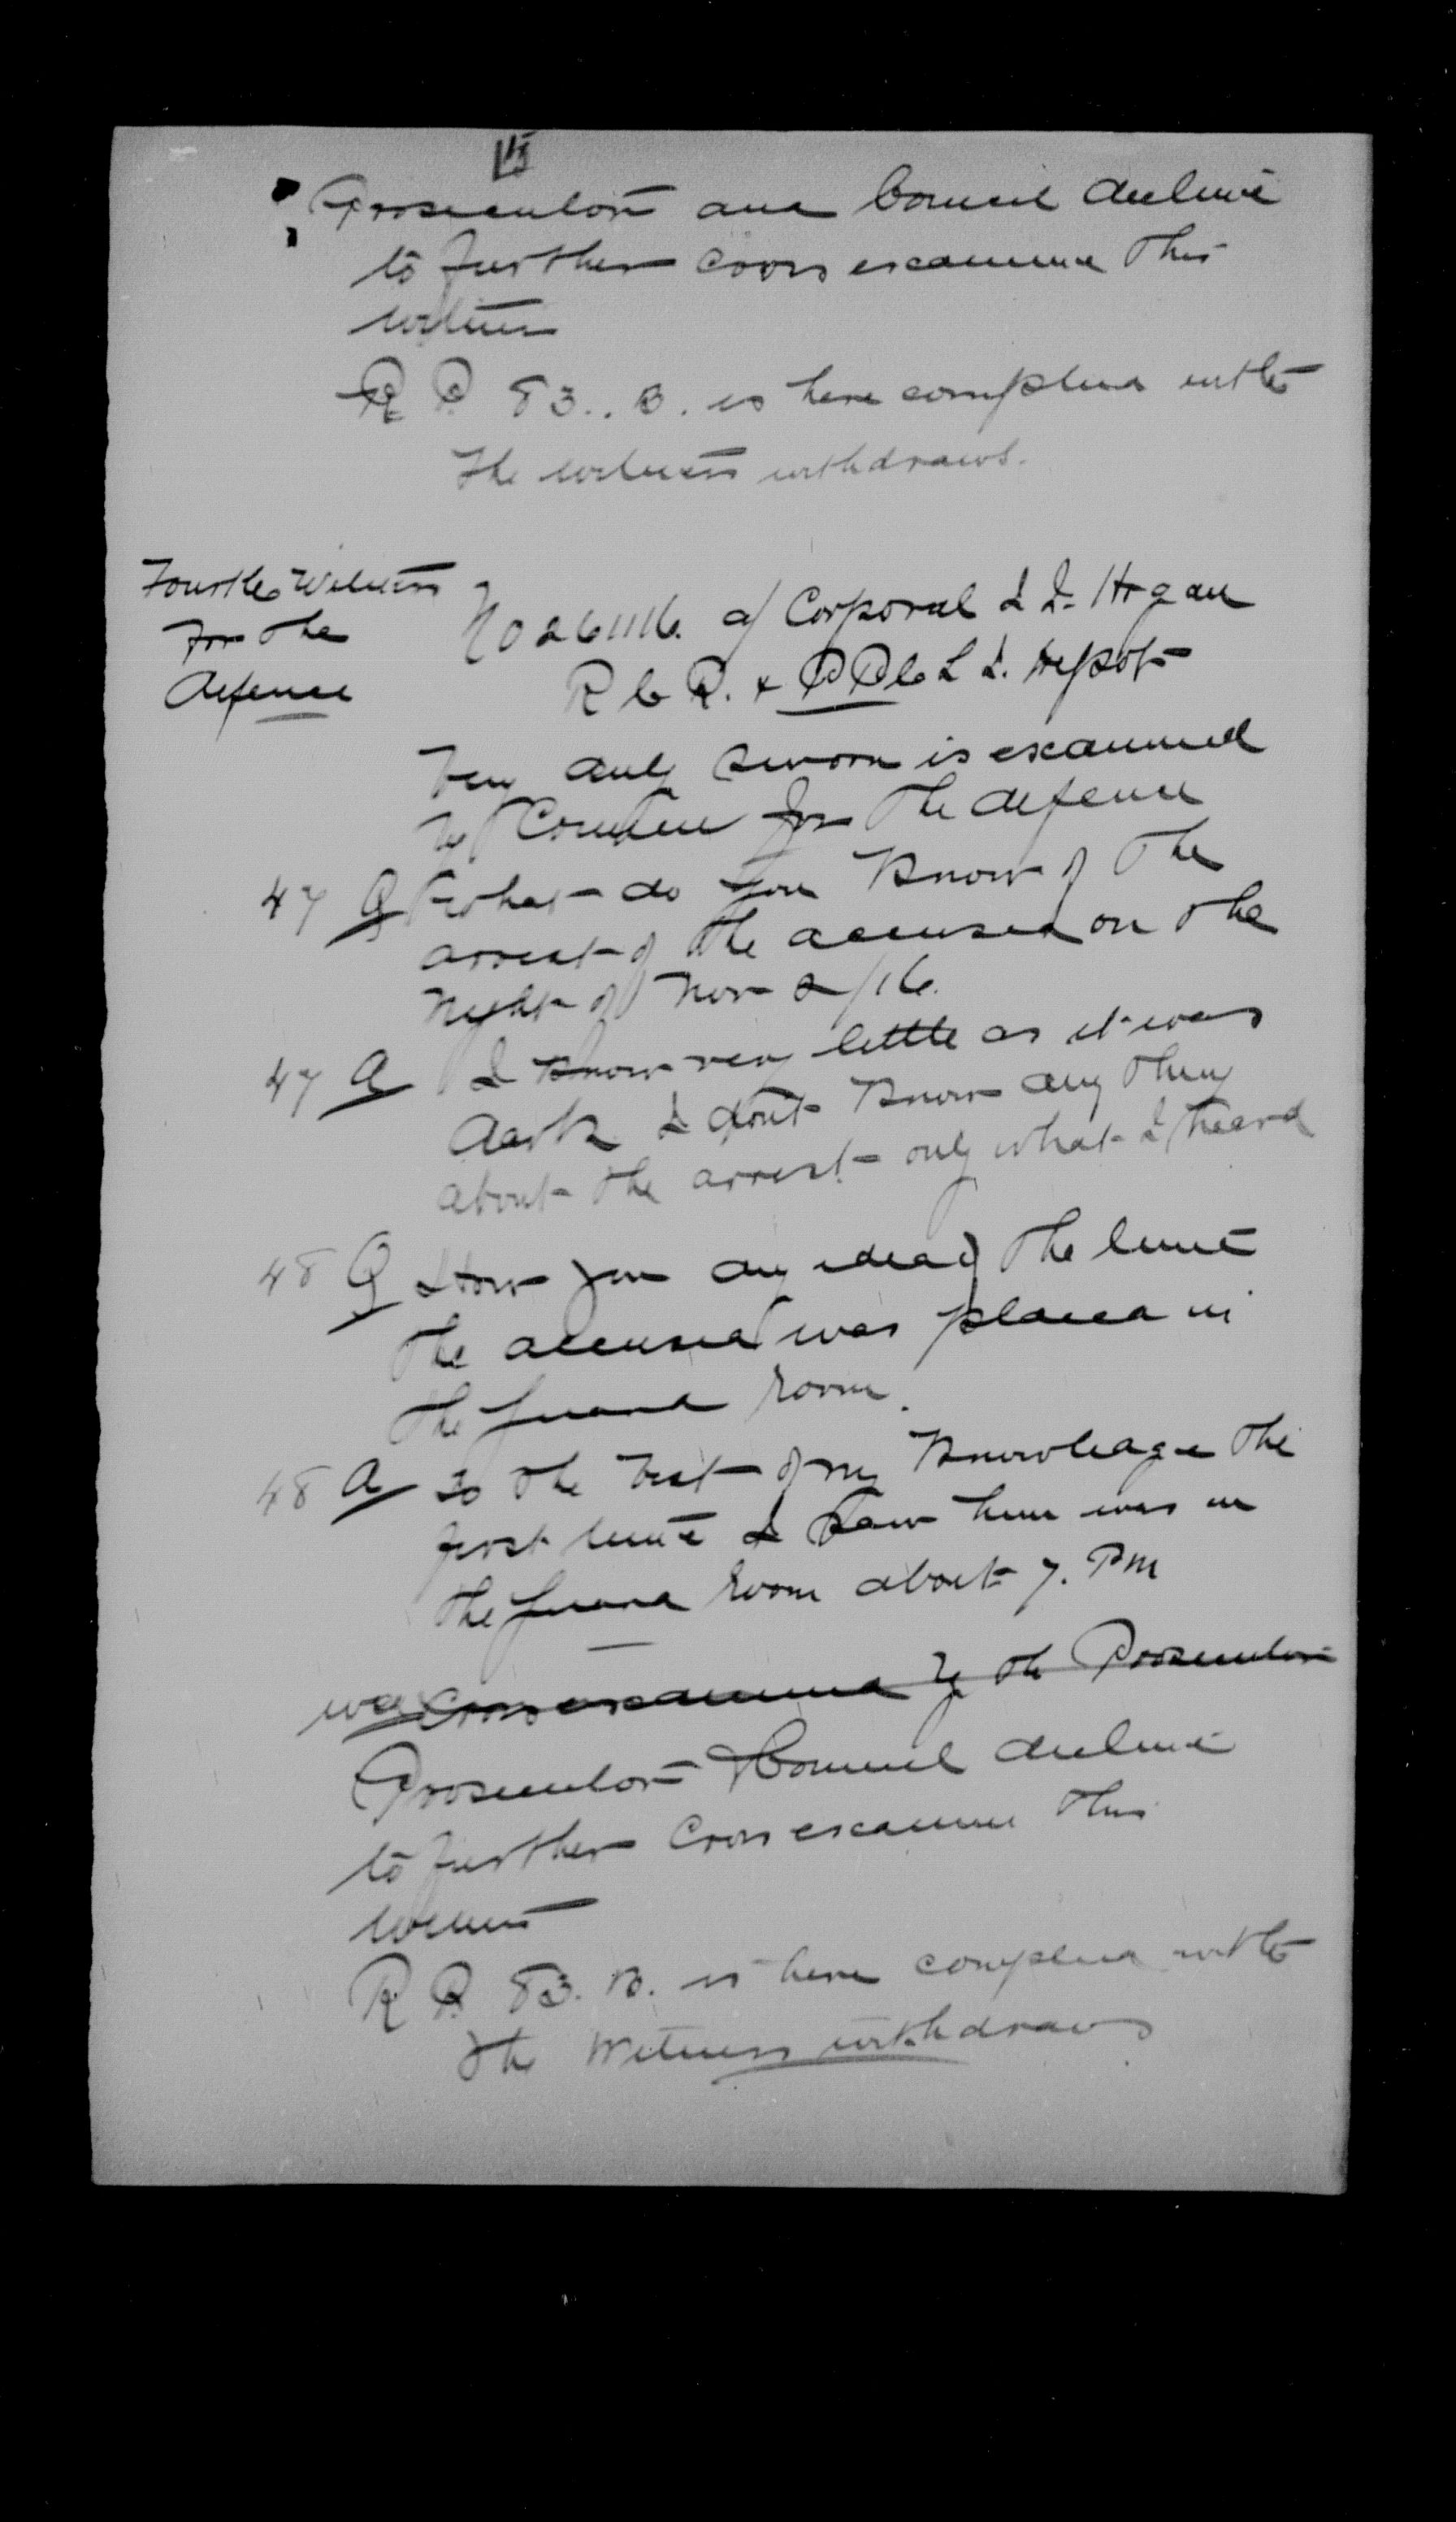 15
Prosecutor and Council decline
to further cross examine this
witness
R P 83. B. is here complied with
The witness withdraws.
Fourth Witness
for the
defence
No 261116. a/ Corporal
R C R. & P P C L I. Depot
being duly sworn is examined
by for the defence
47 Q What do you know of the
arrest of the accused on the
night of Nov 2/16.
47 A I know very little as it was
dark I dont know any thing
about the arrest only what I heard
48 Q Have you any idea of the time
the accused was placed in
the guard room.
48 A To the best of my knowledge the
first time I saw him was in
the guard room about 7. PM
was cross examined by the Prosecutor
Prosecutor & Council decline
to further cross examine this
witness
R P 83. B. is here complied with
The Witness withdraws